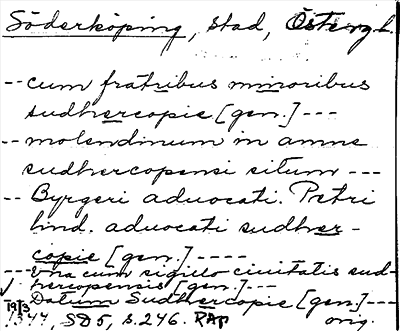 Söderköping, stad, Östergl.
-- cum fratribus minoribus
sudhercopie [gen.] ---
-- molendinum in amne
sudhercopensi situm ---
-- Byrgeri aduocati. Petri
lind. aduocati sudher-
copie [gen.] ----
--- vna cum sigillo ciuitatis sud-
hercopensis [gen.] ---
Datum Sudhercopie [gen.] ---
1344, SD5, s. 246. RAP orig.